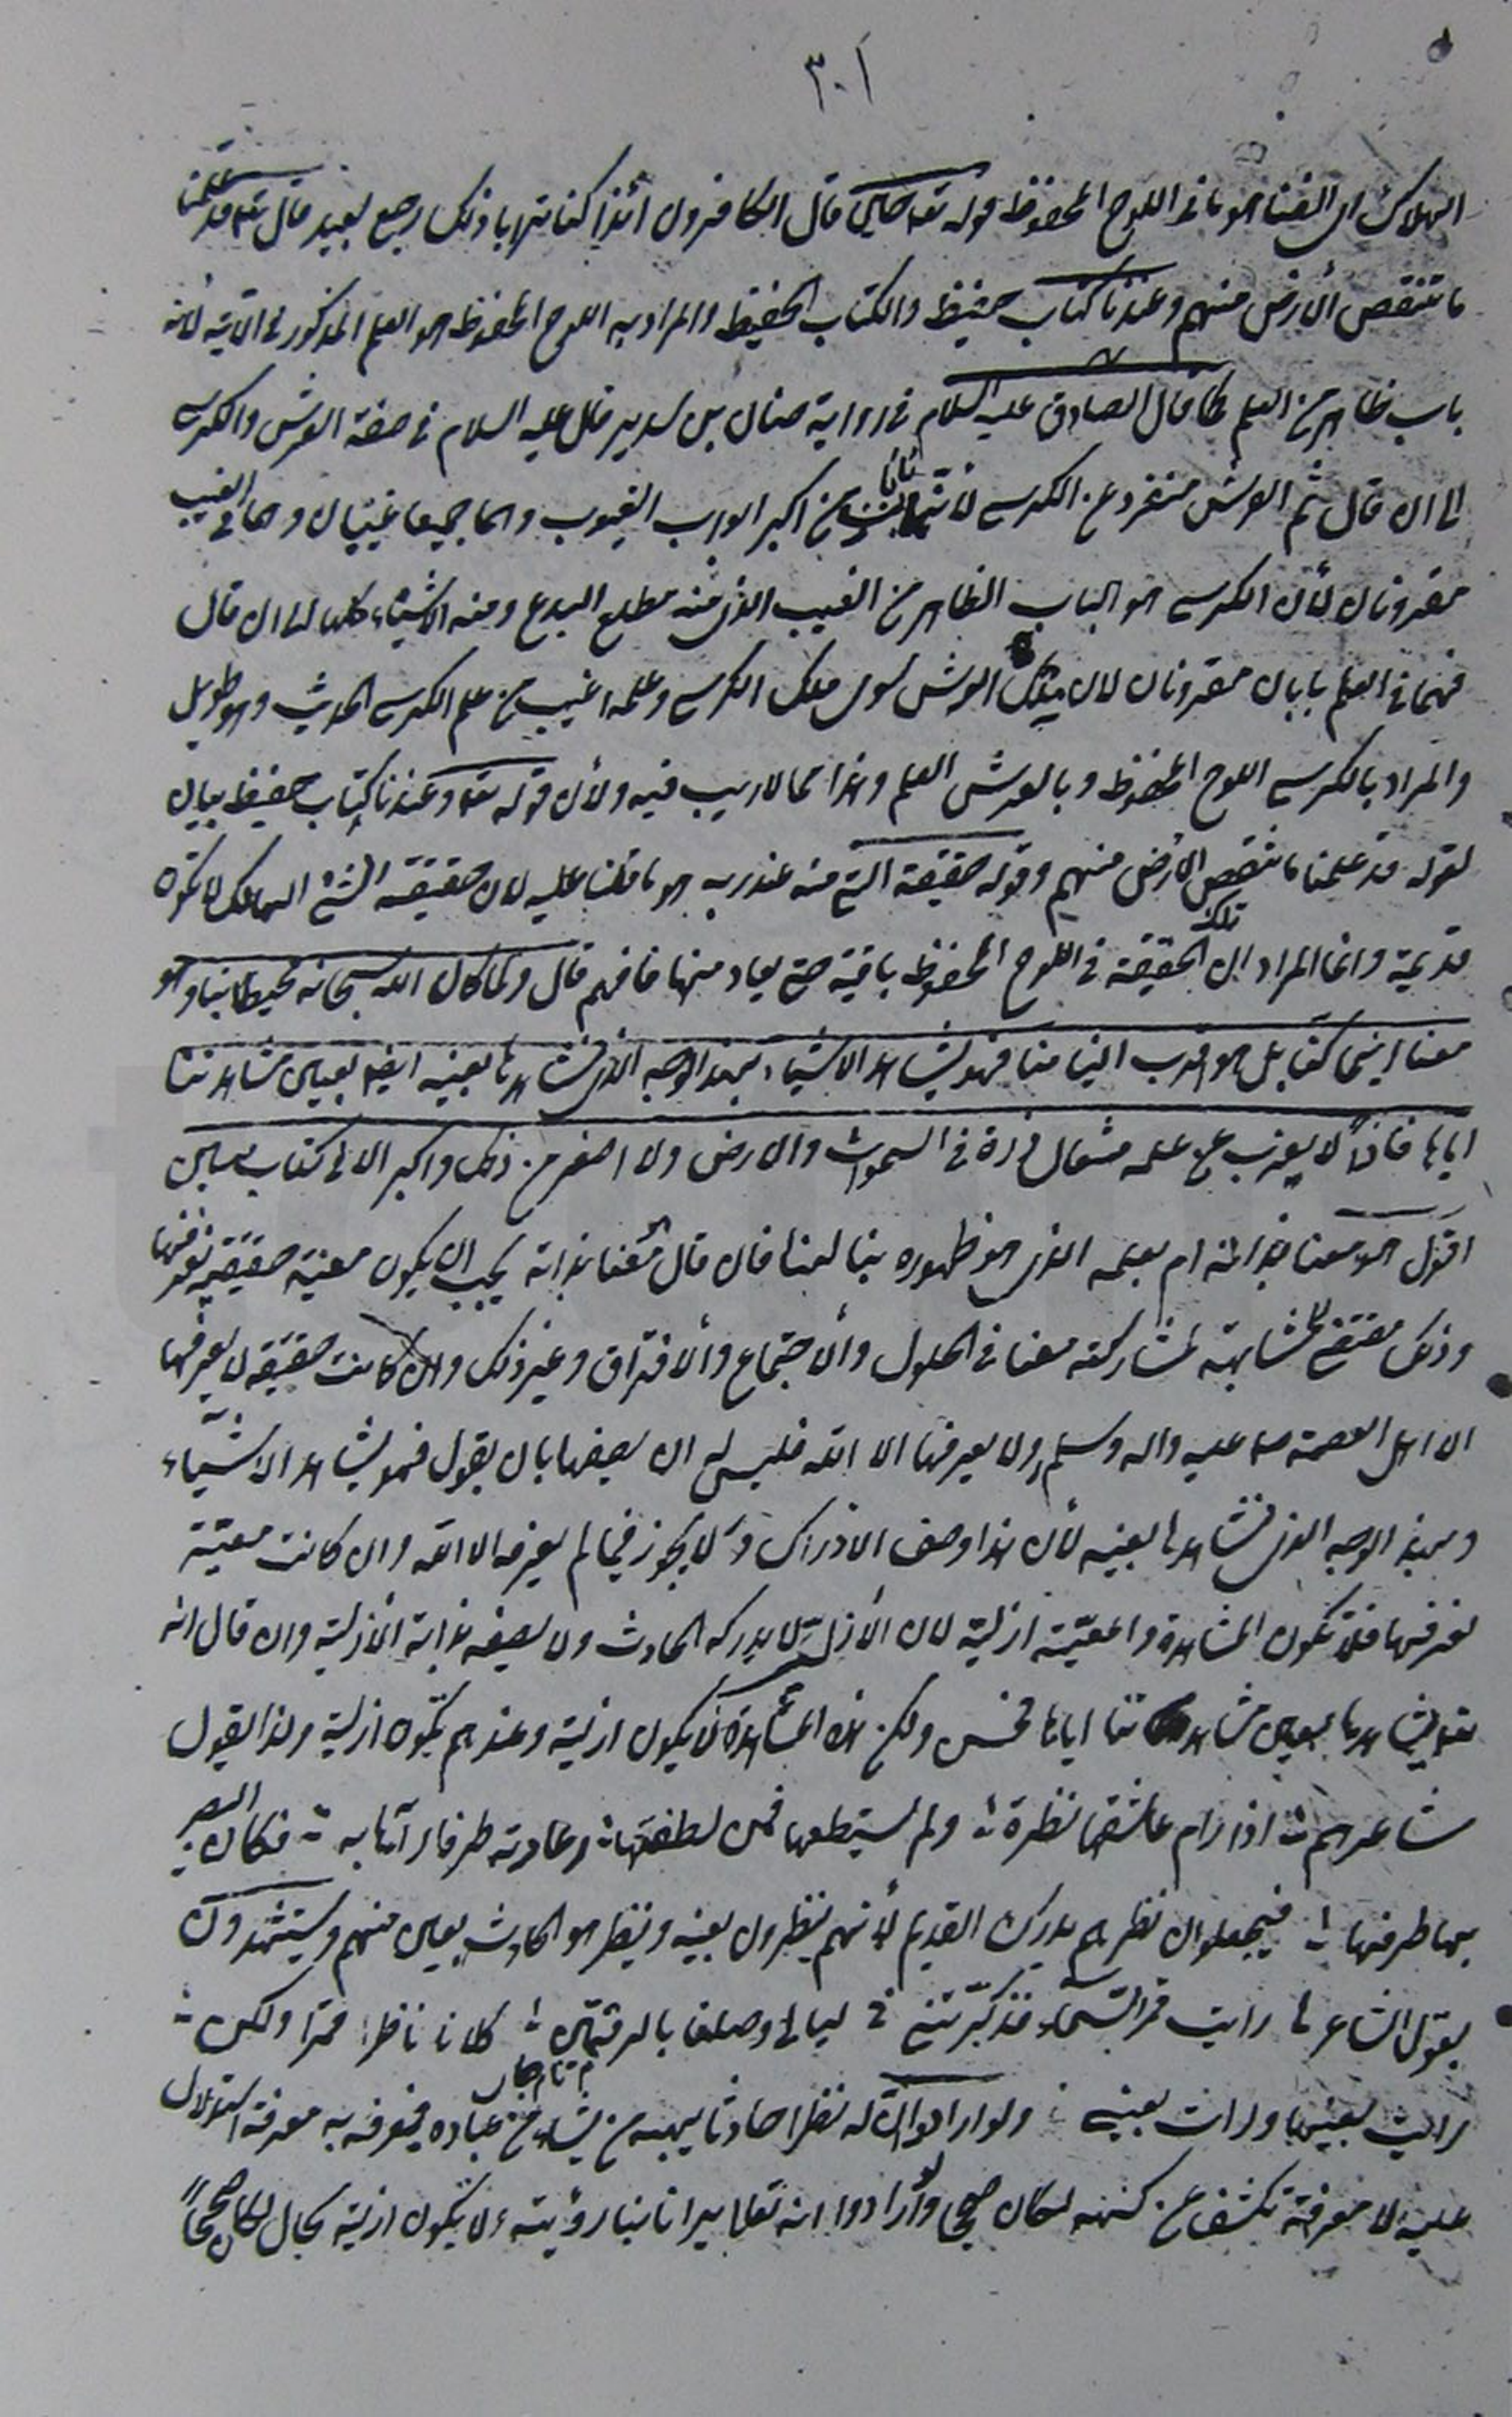 ٣٠١
الهلاك اى الفنا هو ما فى اللوح المحفوظ قوله تعه حاكيا قال الكافرون أئذا كنا ترابا ذلك رجع بعيد قال تعه قد علمنا
ما تنقص الأرض منهم وعندنا كتاب حفيظ والكتاب الحفيظ والمراد به اللوح المحفوظ هو العلم المذكور فى الاية لأنه
باب ظاهر من العلم كما قال الصادق عليه السلام فى رواية حنان بن سدير قال عليه السلام فى صفة العرش والكرسي
الى ان قال ثم العرش متفرد عن الكرسي لأنهما بابان من اكبر ابواب الغيوب وهما جميعا غيبان وهما فى الغيب
مقرونان لأن الكرسي هو الباب الظاهر من الغيب الذى منه مطلع البدع ومنه الاشياء كلها الى ان قال
فهما فى العلم بابان مقرونان لان ملك العرش سوى ملك الكرسي وعلمه اغيب من علم الكرسي الحديث وهو طويل
والمراد بالكرسي اللوح المحفوظ وبالعرش العلم وهذا مما لا ريب فيه ولأن قوله تعه وعندنا كتاب حفيظ بيان
لقوله قد علمنا ما تنقص الأرض منهم وقوله حقيقة التي منه عند ربه هو ما قلنا عليه لان حقيقة الشئ الهالك لا تكون
قديمة وانما المراد ان تلك الحقيقة فى اللوح المحفوظ باقية حتى يعاد منها فافهم قال ولما كان الله سبحانه محيطا بنا وهو
معنا اينما كنا بل هو اقرب الينا منا فهو يشاهد الاشياء بهذا الوجه الذى نشاهدها بعينه ايضا بعين مشاهدتنا
اياها فاذاً لا يعزب عن علمه مثقال ذرة فى السموات والارض ولا اصغر من ذلك واكبر الا فى كتاب مبين
اقول اهو معنا بذاته ام بعلمه الذى هو ظهوره بنا لنا فان قال معنا بذاته يجب ان يكون معية حقيقية نعرفها
وذلك مقتضى لمشابهته لمشاركته معنا فى الحلول والاجتماع والافتراق وغير ذلك وان كانت حقيقة لا يعرفها
الا اهل العصمة صلى عليه واله وسلم ولا يعرفها الا الله فليس له ان يصفها بان يقول فهو يشاهد الاشياء
وبهذا الوجه الذى نشاهدها بعينه لأن هذا وصف الادراك ولا يجوز فيما لم يعرفه الا الله وان كانت معيّة
نعرفها فلا تكون المشاهدة والمعيّة ازلية لان الأزل لا يدركه الحادث ولا يصفه بذاته الأزلية وان قال انه
تعه يشاهدها بعين مشاهدتنا اياها فحسن ولكن هذه المشاهدة لا يكون ازلية وعندهم تكون ازلية ولذا يقول
شاعرهم اذا رام عاشقها نظرة ولم يستطعها فمن لطفها اعارته طرفا رآها به فكان البصير
بها طرفها فيجعلون نظرهم يدرك القديم لأنهم ينظرون بعينه وينظر هو الحادث بعين منهم ويستشهدون
بقول الشاعر رأيت قمر السّماء فذكّرتني ليالى وصلها بالرقمتين كلانا ناظر قمرا ولكن
رأيت بعينها ورأت بعيني ولو ارادوا ان له نظرا حادثا يهبه من يشاء من عباده فيعرفه به معرفة استدلال
عليه لا معرفة تكشف عن كنهه لكان صحيحا ولو ارادوا انه تعالى يرانا بنا رؤيته ولا يكون ازلية بحال لكان صحيحاً